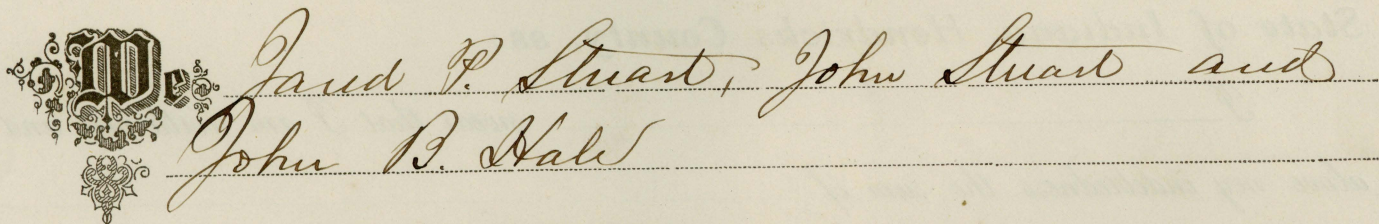 We Jared P. Stuart, John Stuart and
John B. Hale